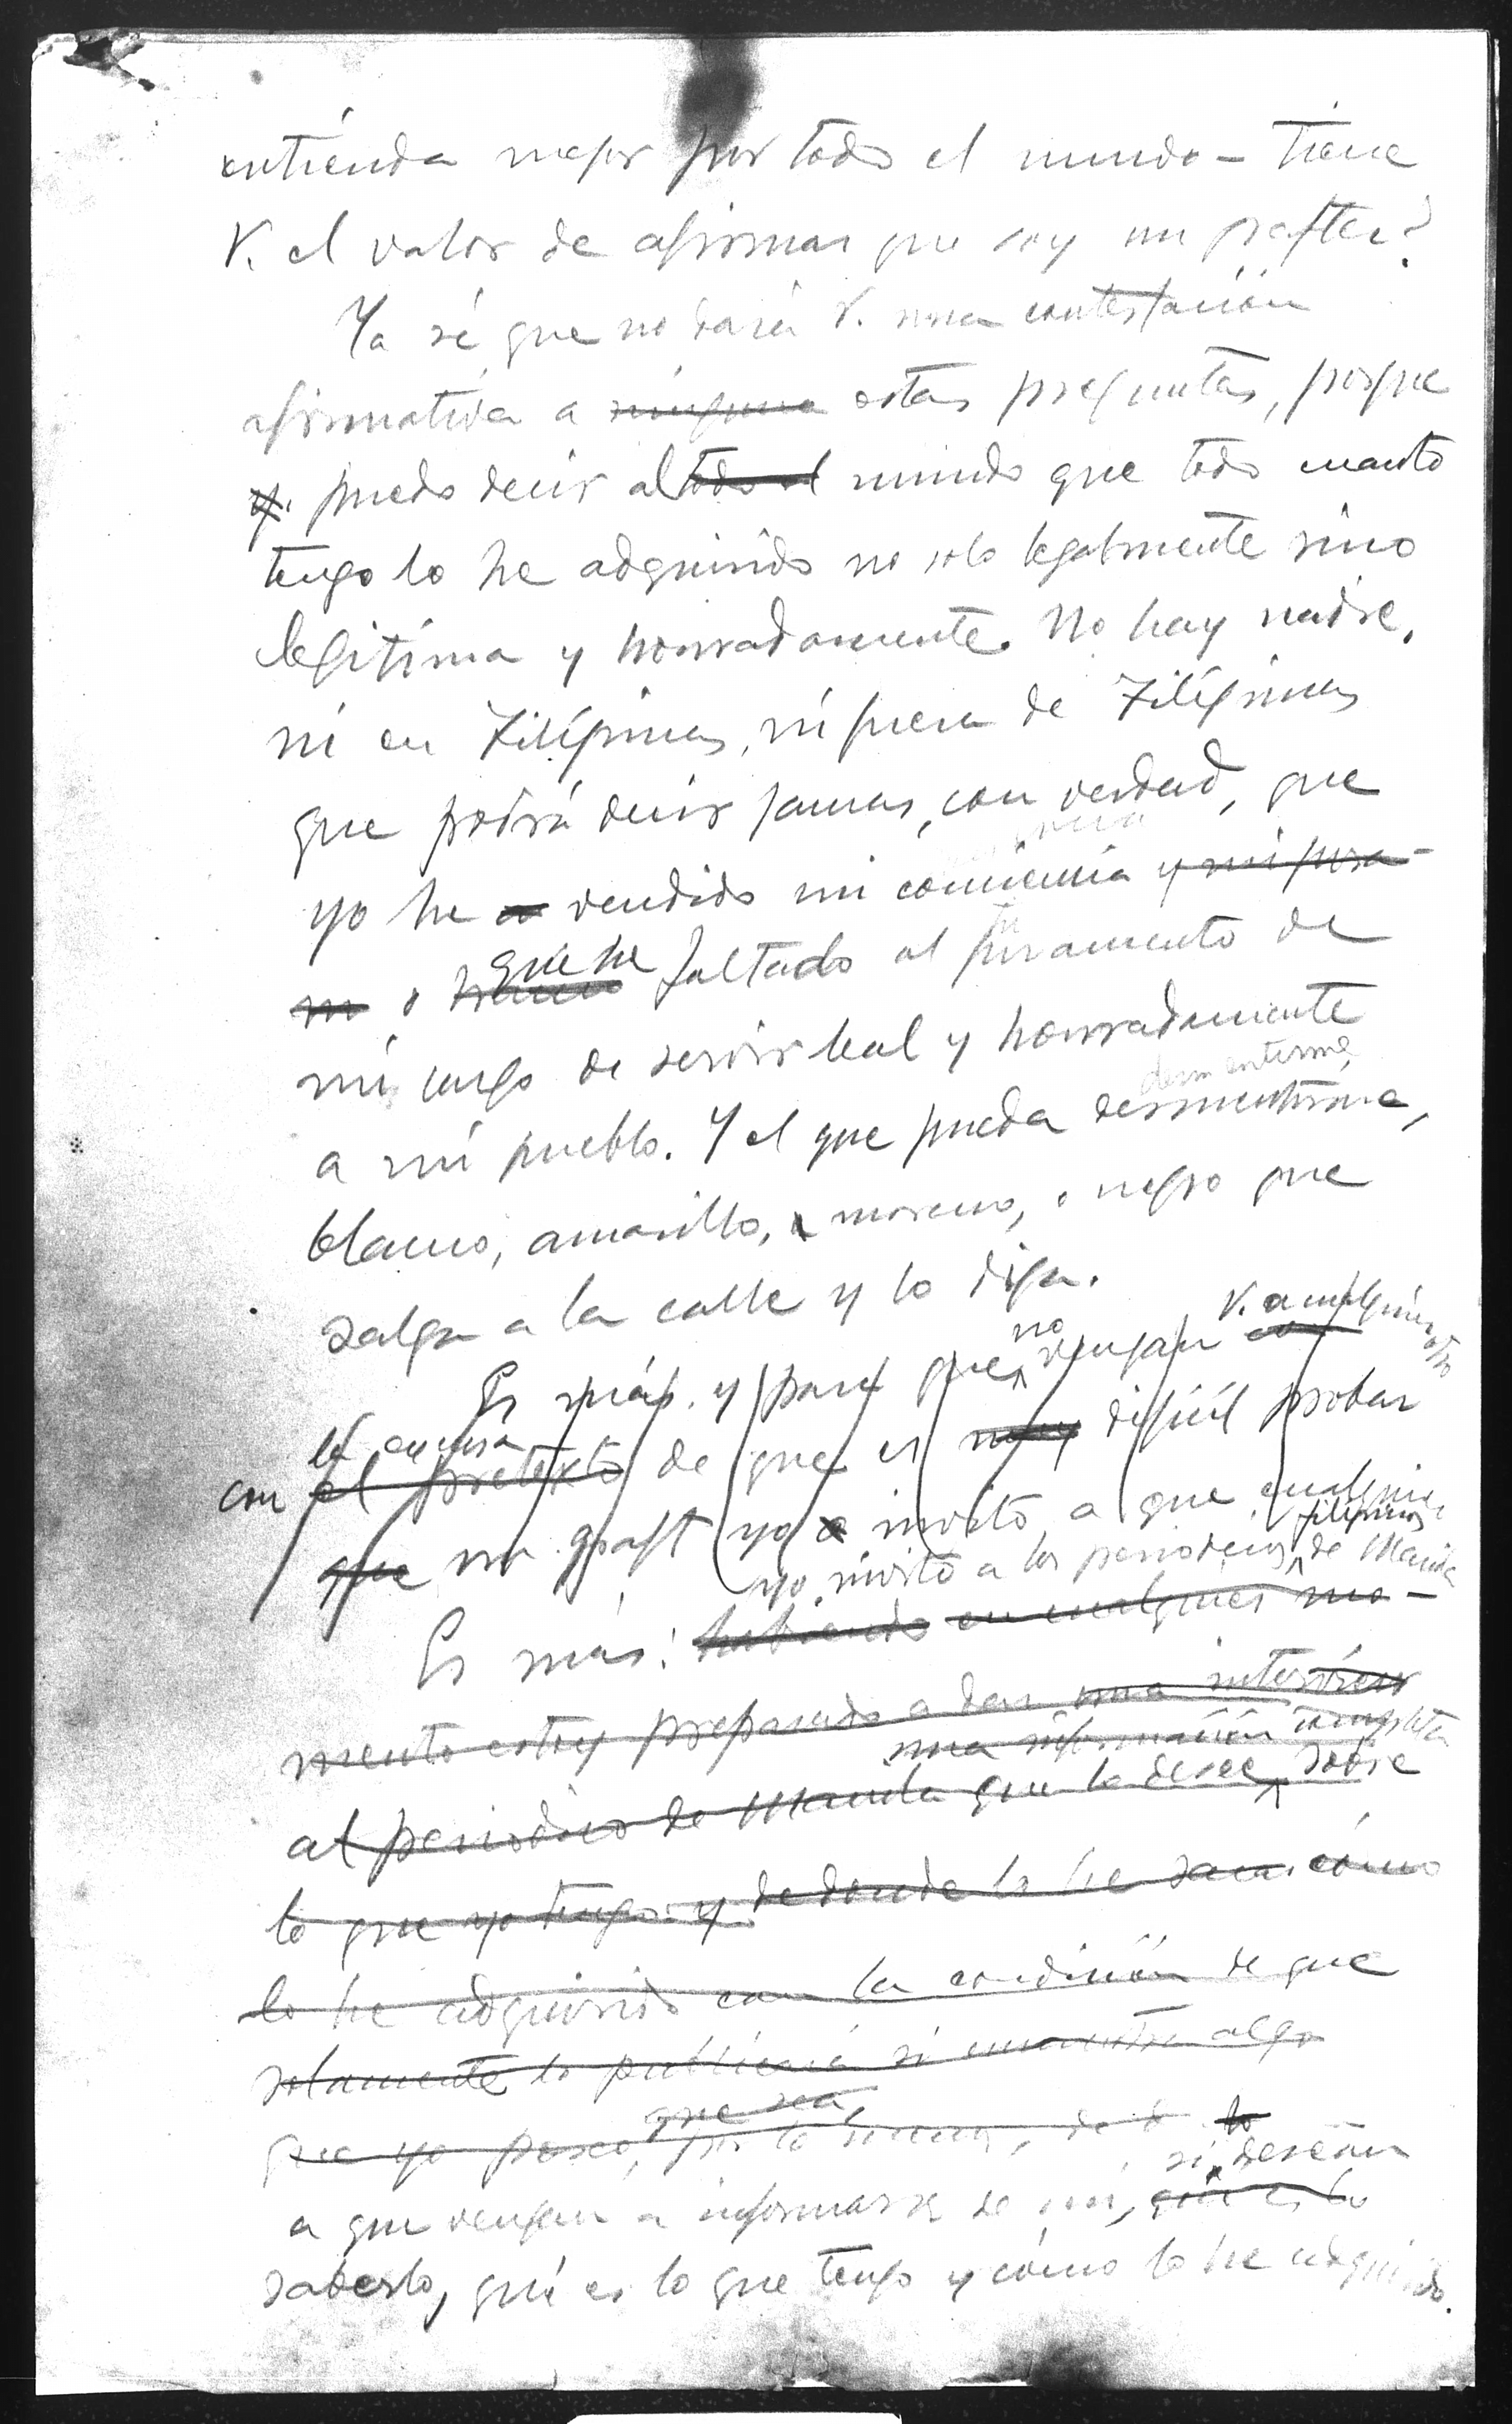 entienda mejor por todo el mundo – tiene
V. el valor de afirmar que soy un grafter?
Ya sé que no dará V. una contestación
afirmativa a ninguna estas preguntas, porque
y. puedo decir al todo el mundo que todo cuanto
tengo lo he adquirido no solo legalmente sino
legítima y honradamente. No hay nadie,
ni en Filipinas, ni fuera de Filipinas
que podrá decir jamas, con verdad, que
yo he vendido mi conciencia y mi jura-
m o que he faltado al juramento de
mi cargo de servir leal y honradamente
desmentirme,
a mi pueblo. Y el que pueda desmentirme,
blanco, amarillo, moreno, o negro que
salga a la calle y lo diga.
no V. o cualquier otro
Es más. y para que vengan con
la excusa
con el pretexto de que es muy difícil probar
que un graft yo invito, a que cualquier
filipinos
yo invito a los periódicos de Manila
Es más: habiendo en cualquier mo-
mento estoy preparado a dar una interview
una información completa
al periódico de Manila que lo desee sobre
lo que yo tengo y de donde lo he saca. cómo
lo he adquirido con la condición de que
solamente lo publicará si encuentra algo
que sea,
que yo poseo, por lo menos, de lo
si desean
a que vengan a informarse de mi, qué es lo
saberlo, qué es lo que tengo y cómo lo he adquirido.